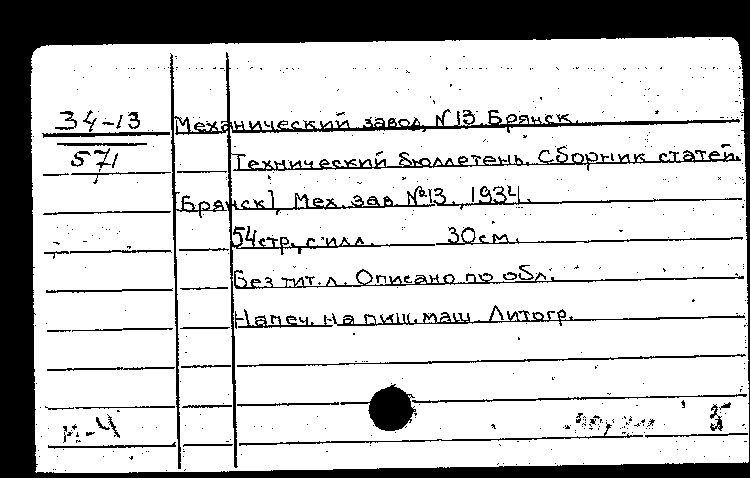 34-13
571
Механический завод, N 13. Брянск.
Технический бюллетень. Сборник статей.
[Брянск], Мех. зав. №13., 1934.
54 стр., с илл. 30 см.
Без тит. л. Описано по обл.
Напеч. на пиш. маш. Литогр.
И-4